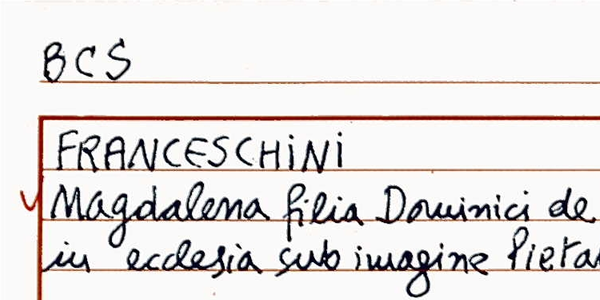 BCS
FRANCESCHINI
Magdalena filia Dominici de
in ecclesia sub imagine